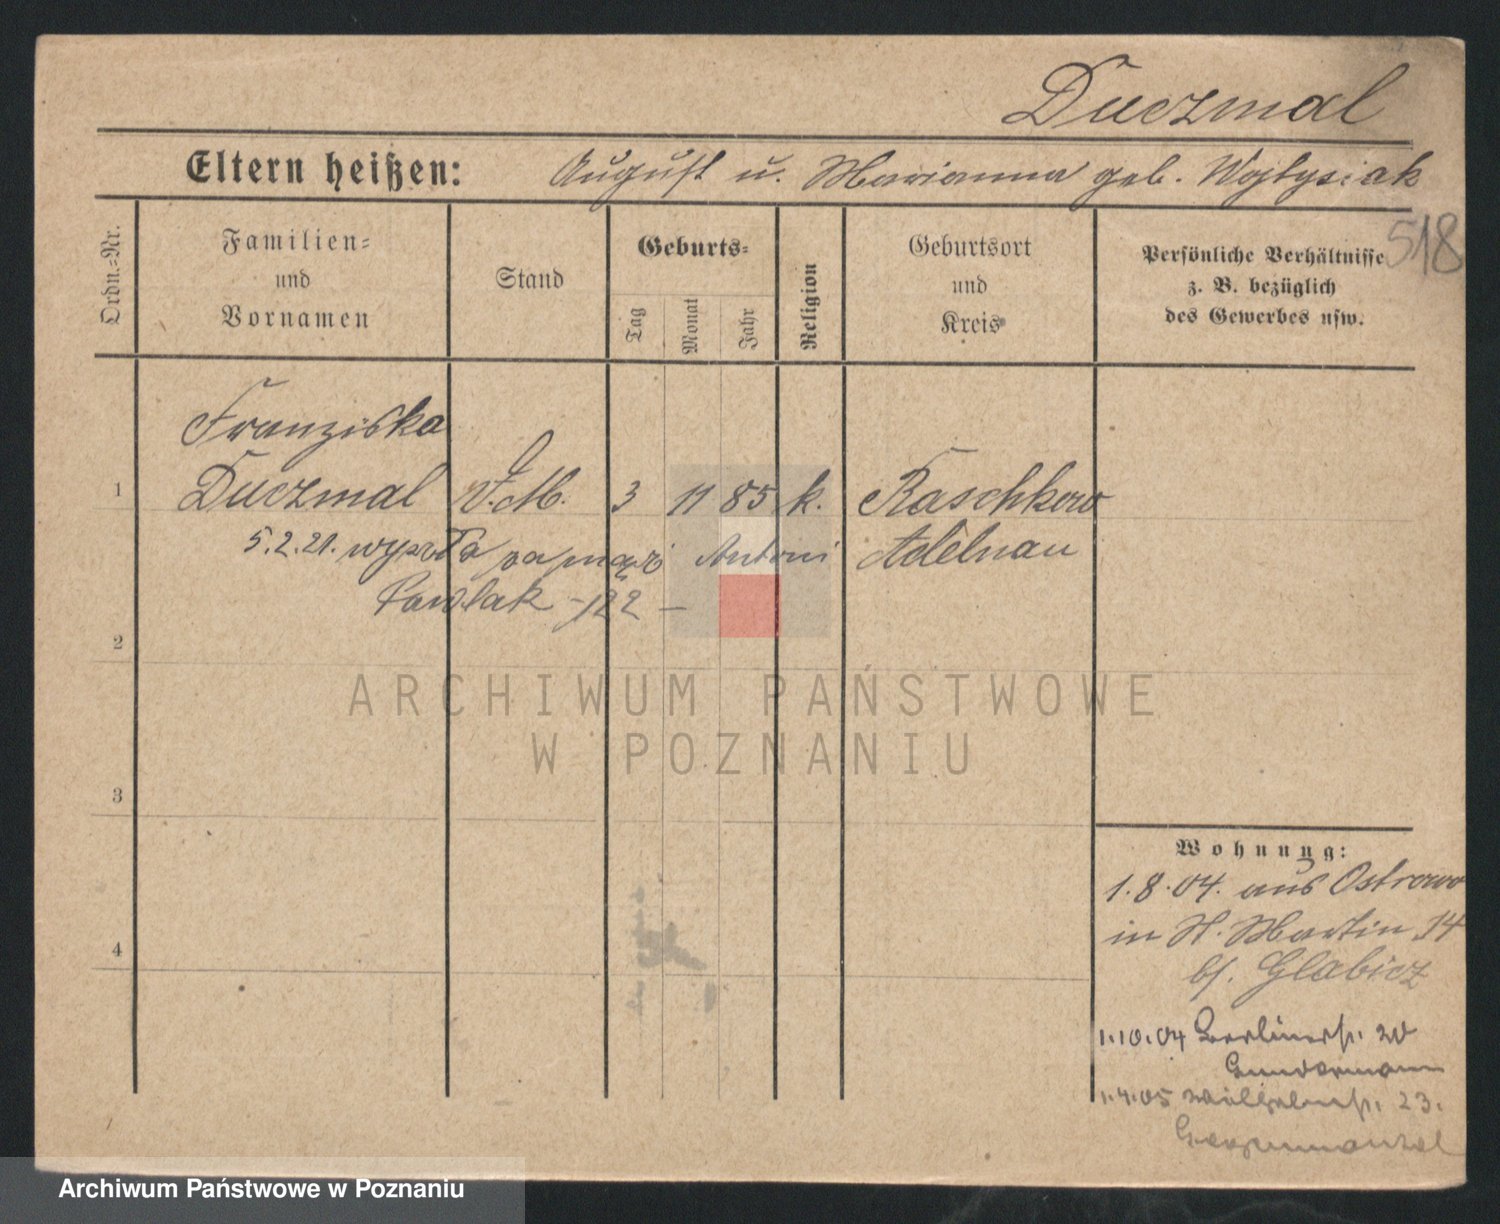 Duczmal
Eltern heißen: August u. Marianna geb. Wojtysiak
518
Ordn.-Nr.
Familien-
und
Vornamen
Stand
Geburts-
Tag
Monat
Jahr
Religion
Geburtsort
und
Kreis
Persönliche Verhältnisse
z. B. bezüglich
des Gewerbes usw.
Franziska
1 Duczmal 3 11 85 k. Raschkow
5.2.21. wyszła za mąż Antoni Adelnau
Pawlak
2
ARCHIWUM PAŃSTWOWE
W POZNANIU
3
Wohnung:
1.8.04. aus Ostrowo
in St. Martin 14
4
b/. Glabicz
1.10.04 Berlinerstr. 20
Gundermann
1.4.05 Wilhelmstr. 23.
Archiwum Państwowe w Poznaniu